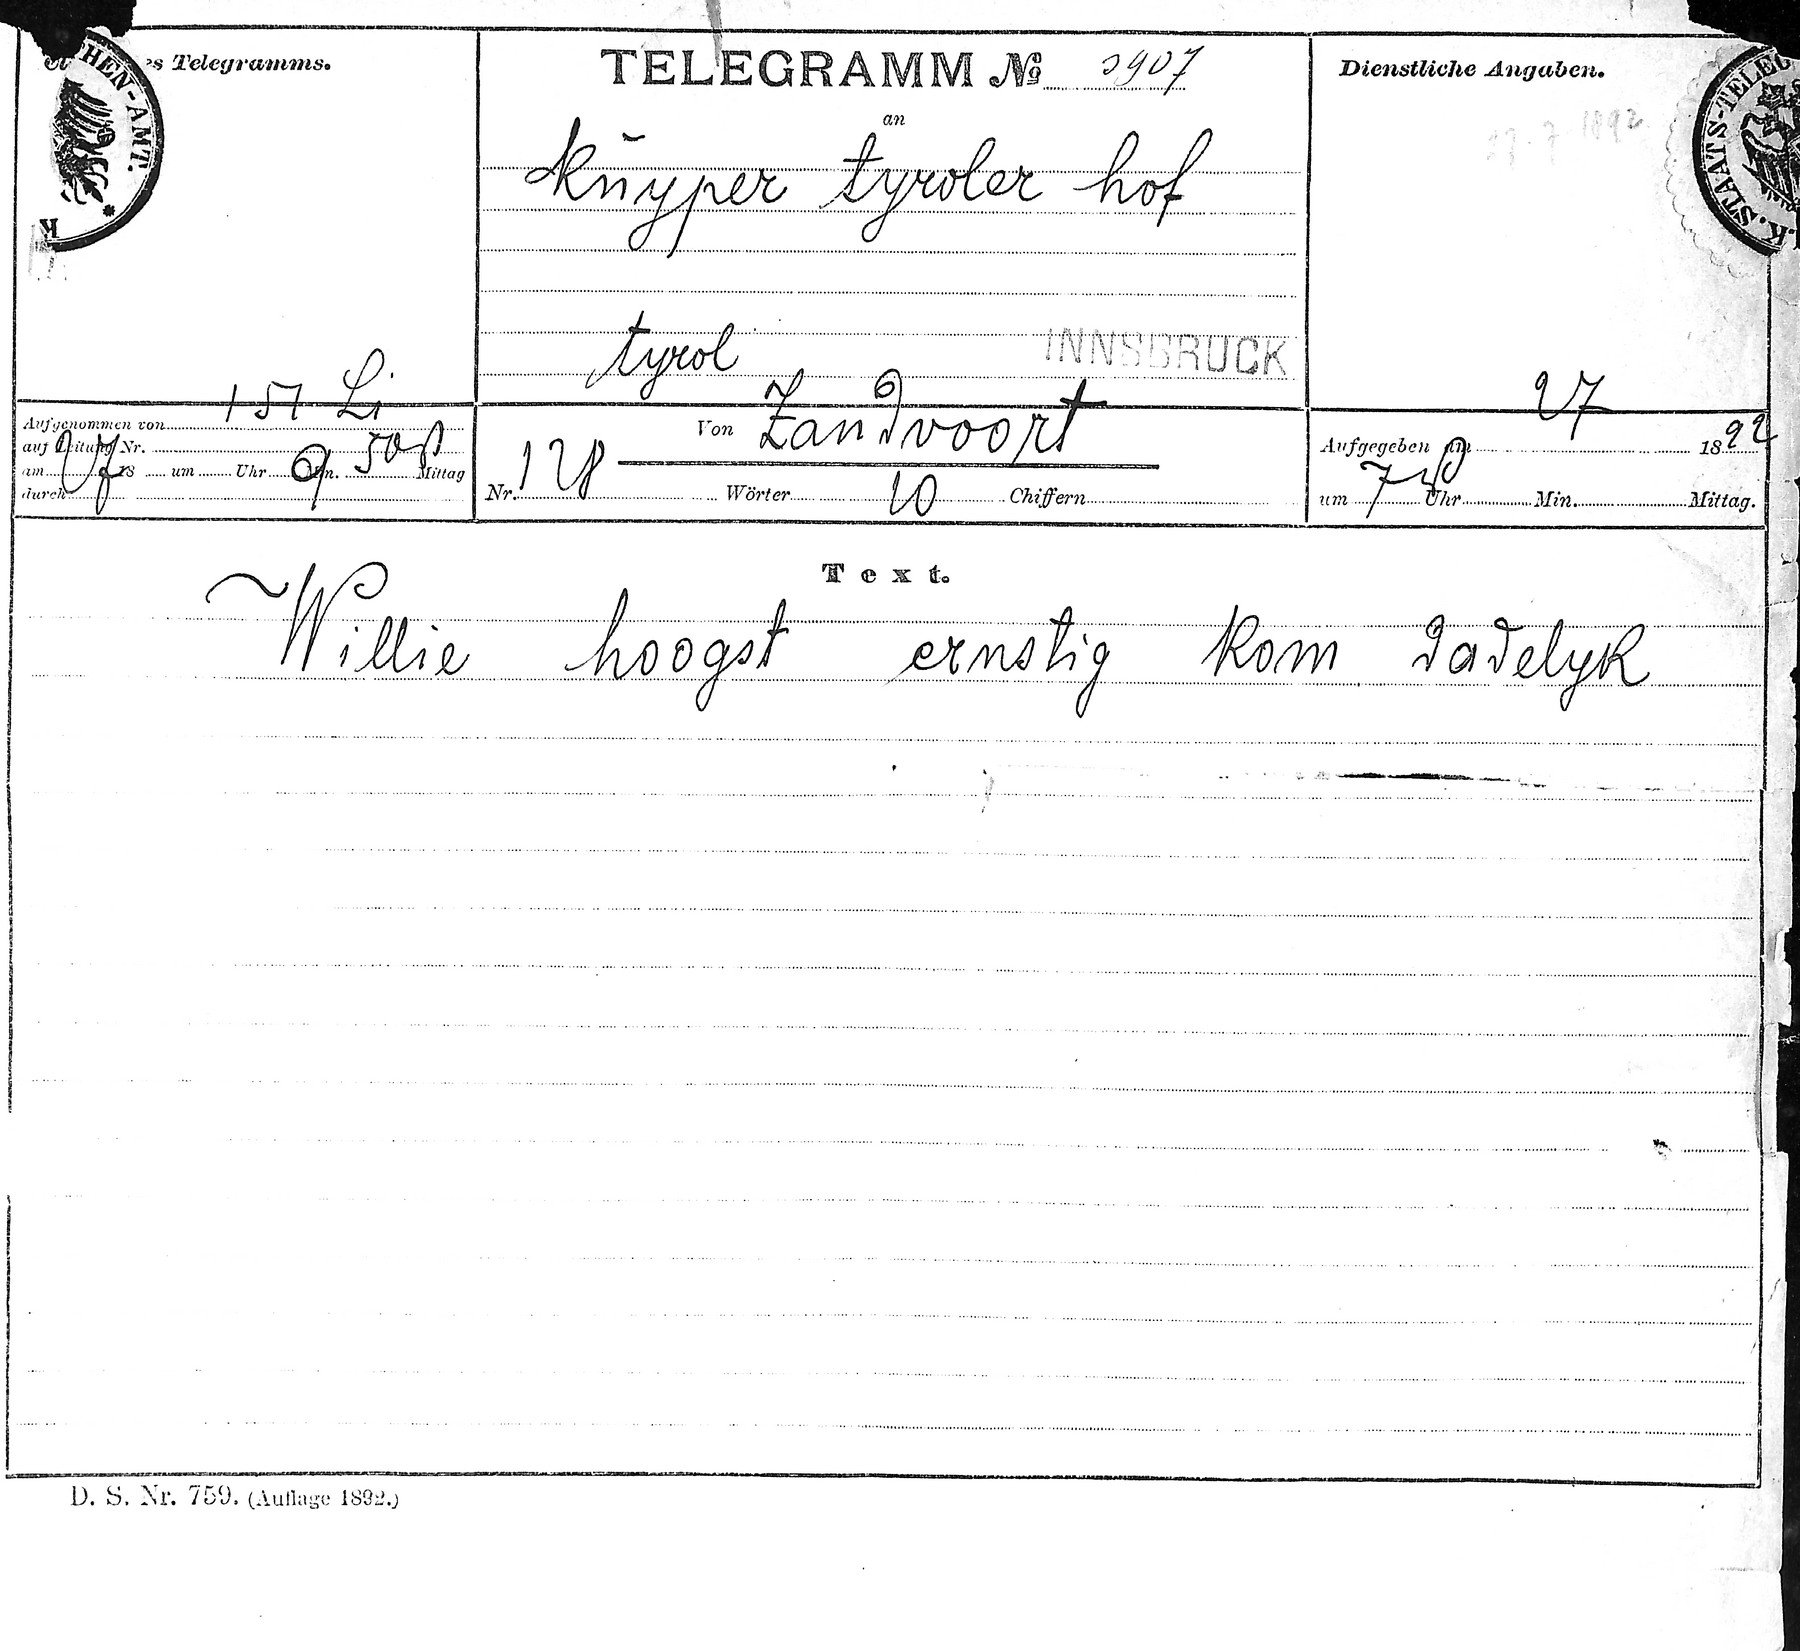 HEN-AMT.
es Telegramms.
TELEGRAMM No 3907
Dienstliche Angaben.
K. STAATS-TELEG
27.7.1892
an
Kuyper tyroler hof
tyrol
INNSBRUCK
Aufgenommen von 157 Li
auf Leitung Nr.
am 27 18 um Uhr 9 50 Mittag
durch
Von Zandvoort
Nr. 128 Wörter 10 Chiffern
Aufgegeben am 27 1892
um 7 Uhr Min. Mittag.
Text.
Willie hoogst ernstig kom dadelyk
D. S. Nr. 759. (Auflage 1892.)